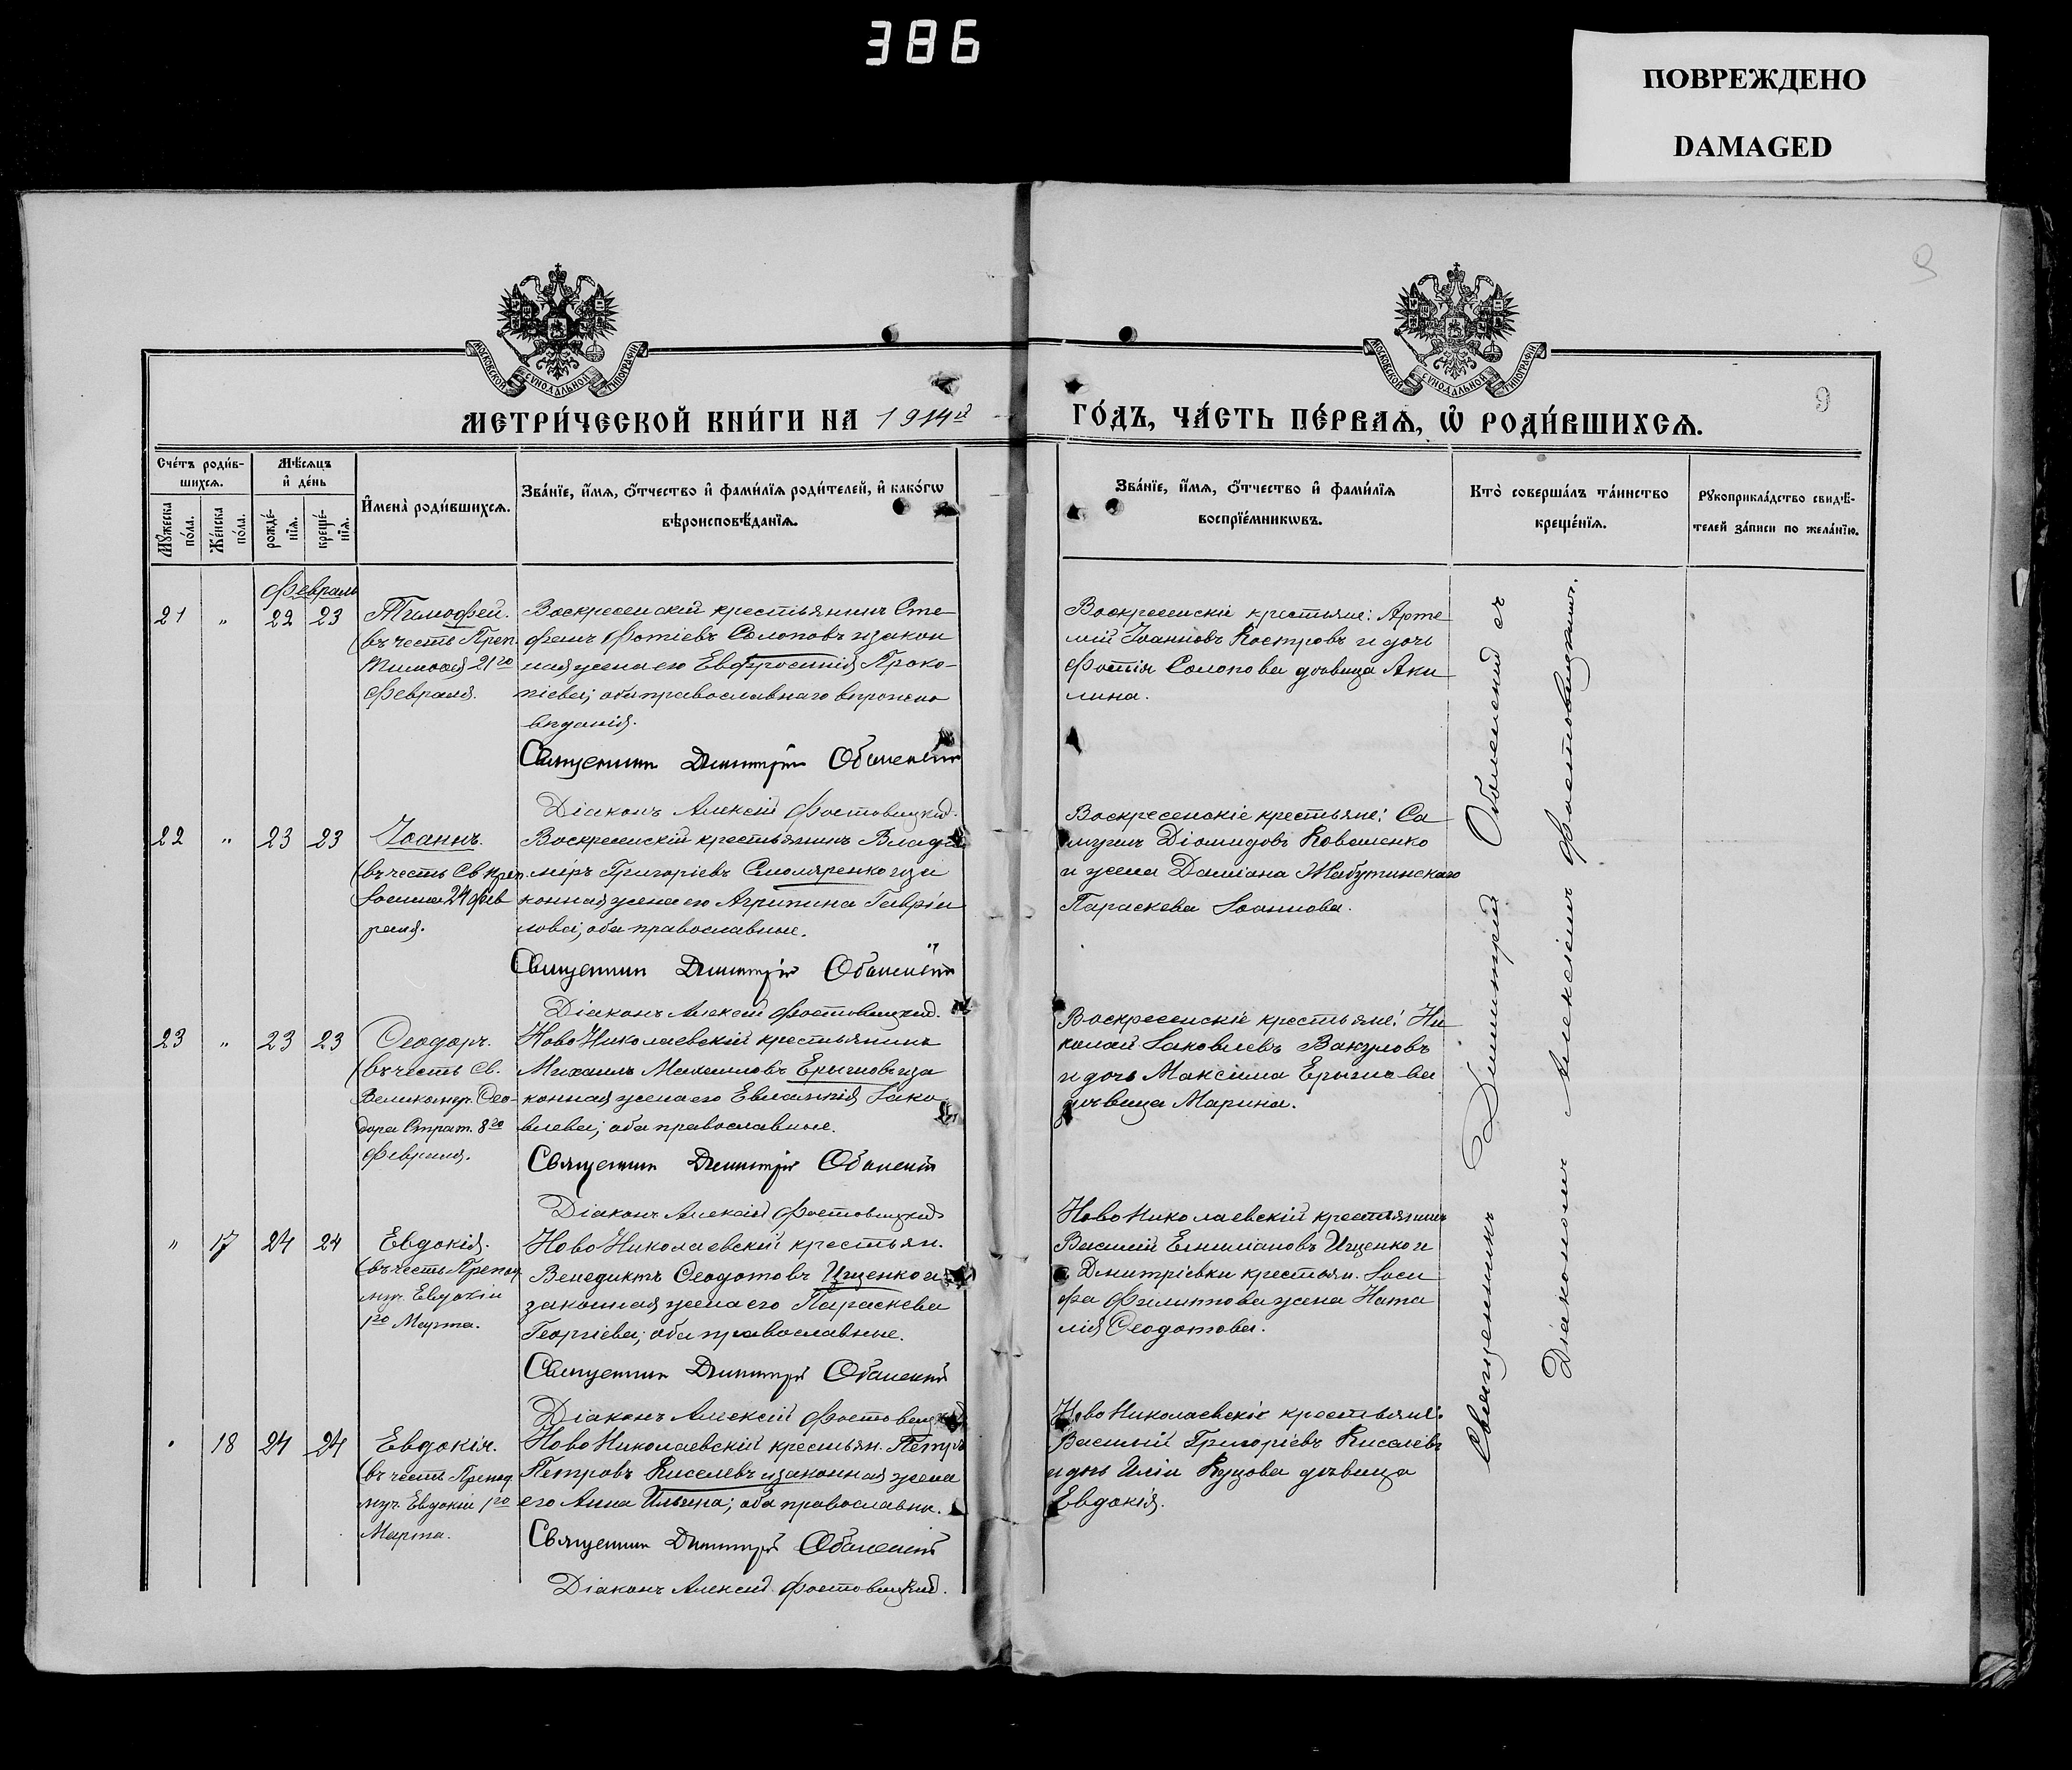 386
ПОВРЕЖДЕНО
DAMAGED
МОСКОВСКОЙ СѴНОДАЛЬНОЙ ТИПОГРАФІИ
МОСКОВСКОЙ СѴНОДАЛЬНОЙ ТИПОГРАФІИ
9
9
МЕТРИ́ЧЕСКОЙ КНИ́ГИ НА 1914й
ГО́ДЪ, ЧА́СТЬ ПЕ́РВАѦ, Ѡ҆ РОДИ́ВШИХСѦ.
Сче́тъ роди́в-
шихсѧ.
Мꙋ́жеска по́ла.
Же́нска по́ла.
Мѣ́сѧцъ
и҆ де́нь
рожде́-
нїѧ.
креще́-
нїѧ.
И҆мена̀ роди́вшихсѧ.
Зва́нїе, и҆́мѧ, ѻ҆́тчество и҆ фами́лїѧ роди́телей, и҆ како́гѡ
вѣроисповѣ́данїѧ.
Зва́нїе, и҆́мѧ, ѻ҆́тчество и҆ фами́лїѧ
воспрїе́мникѡвъ.
Кто̀ соверша́лъ та́инство
креще́нїѧ.
Рꙋкоприкла́дство свидѣ́-
телей за́писи по жела́нїю.
Февраль
21 " 22 23 Тимофей.
(въ честь Преп.
Тимофея 21го
Февраля.
Воскресенскій крестьянинъ Сте-
фанъ Фотіевъ Солоповъ и закон
ная жена его Евфросинія Проко-
піева; оба православнаго вѣроиспо
вѣданія.
Священникъ Димитрій Оболенскій
Діаконъ Алексій Фостовицкій.
Воскресенскіе крестьяне: Арте
мій Іоанновъ Костровъ и дочь
Фотія Солопова дѣвица Аки
лина.
22 " 23 23 Іоаннъ.
(въ честь Св. Крес.
Іоанна 24 Фев
раля.
Воскресенскій крестьянинъ Влади
міръ Григоріевъ Смоляренко и за
конная жена его Агрипина Гавріи
лова; оба православные.
Священникъ Димитрій Оболенскій
Діаконъ Алексій Фостовицкій.
Воскресенскіе крестьяне: Са
муилъ Діомидовъ Коваленко
и жена Даміана Жаботинскаго
Параскева Іоаннова.
23 " 23 23 Ѳеодоръ.
(въ честь Св.
Великомуч. Ѳео-
дора Страт. 8го
Февраля.
Ново Николаевскій крестьянинъ
Михаилъ Михаиловъ Ерыгиновъ и за
конная жена его Евлампія Іако
влева; оба православные.
Священникъ Димитрій Оболенскій
Діаконъ Алексій Фостовицкій
Воскресенскіе крестьяне: Ни
колай Іаковлевъ Вакуловъ
и дочь Максима Ерыгинова
дѣвица Марина.
" 17 24 24 Евдокія.
(въ честь Препод.
муч. Евдокіи
1го Марта.
Ново Николаевскій крестьян.
Венедиктъ Ѳеодотовъ Ищенко и
законная жена его Параскева
Георгіева; оба православные.
Священникъ Димитрій Оболенскій
Діаконъ Алексій Фостовицкій
Ново Николаевскій крестьянинъ
Василій Емиліановъ Ищенко и
Дмитріевки крестьян. Іоси
фа Филиппова жена Ната
лія Ѳеодотова.
" 18 24 24 Евдокія.
(въ честь Препод.
муч. Евдокіи 1го
Марта.
Ново Николаевскій крестьян. Петръ
Петровъ Киселевъ и законная жена
его Анна Ильина; оба православн.
Священникъ Димитрій Оболенскій
Діаконъ Алексій Фостовицкій.
Ново Николаевскіе крестьяне:
Василій Григоріевъ Киселевъ
и дочь Иліи Куцова дѣвица
Евдокія.
Священникъ Димитрій Оболенскій съ
Діакономъ Алексіемъ Фостовицкимъ.